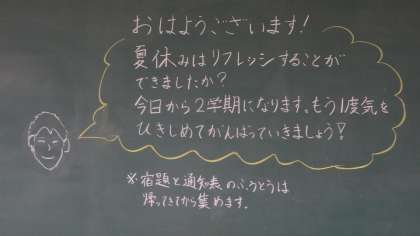 おはようございます!
夏休みはリフレッシすることが
できましたか?
今日から2学期になります。もう1度気を
ひきしめてがんばっていきましょう!
※宿題と通知表のふうとうは
帰ってきてから集めます。